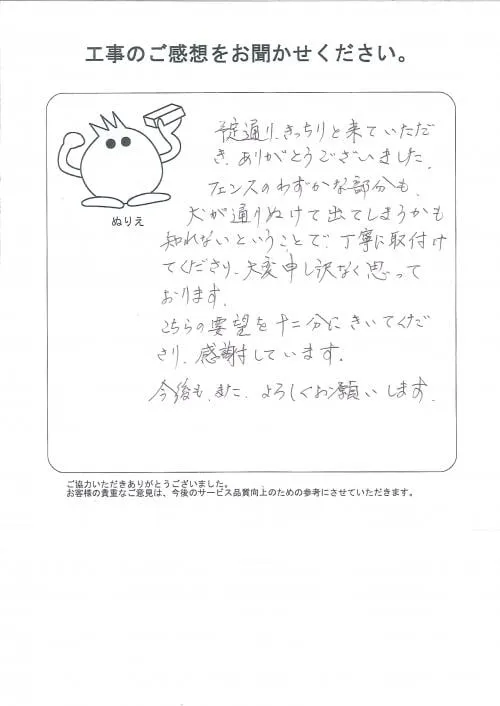 工事のご感想をお聞かせください。
予定通り、きっちりと来ていただ
き、ありがとうございました。
フェンスのわずかな部分も、
犬が通りぬけて出てしまうかも
知れないということで、丁寧に取付け
てくださり、大変申し訳なく思って
おります。
こちらの要望を十二分にきいてくだ
さり、感謝しています。
今後も、また、よろしくお願いします。
ぬりえ
ご協力いただきありがとうございました。
お客様の貴重なご意見は、今後のサービス品質向上のための参考にさせていただきます。